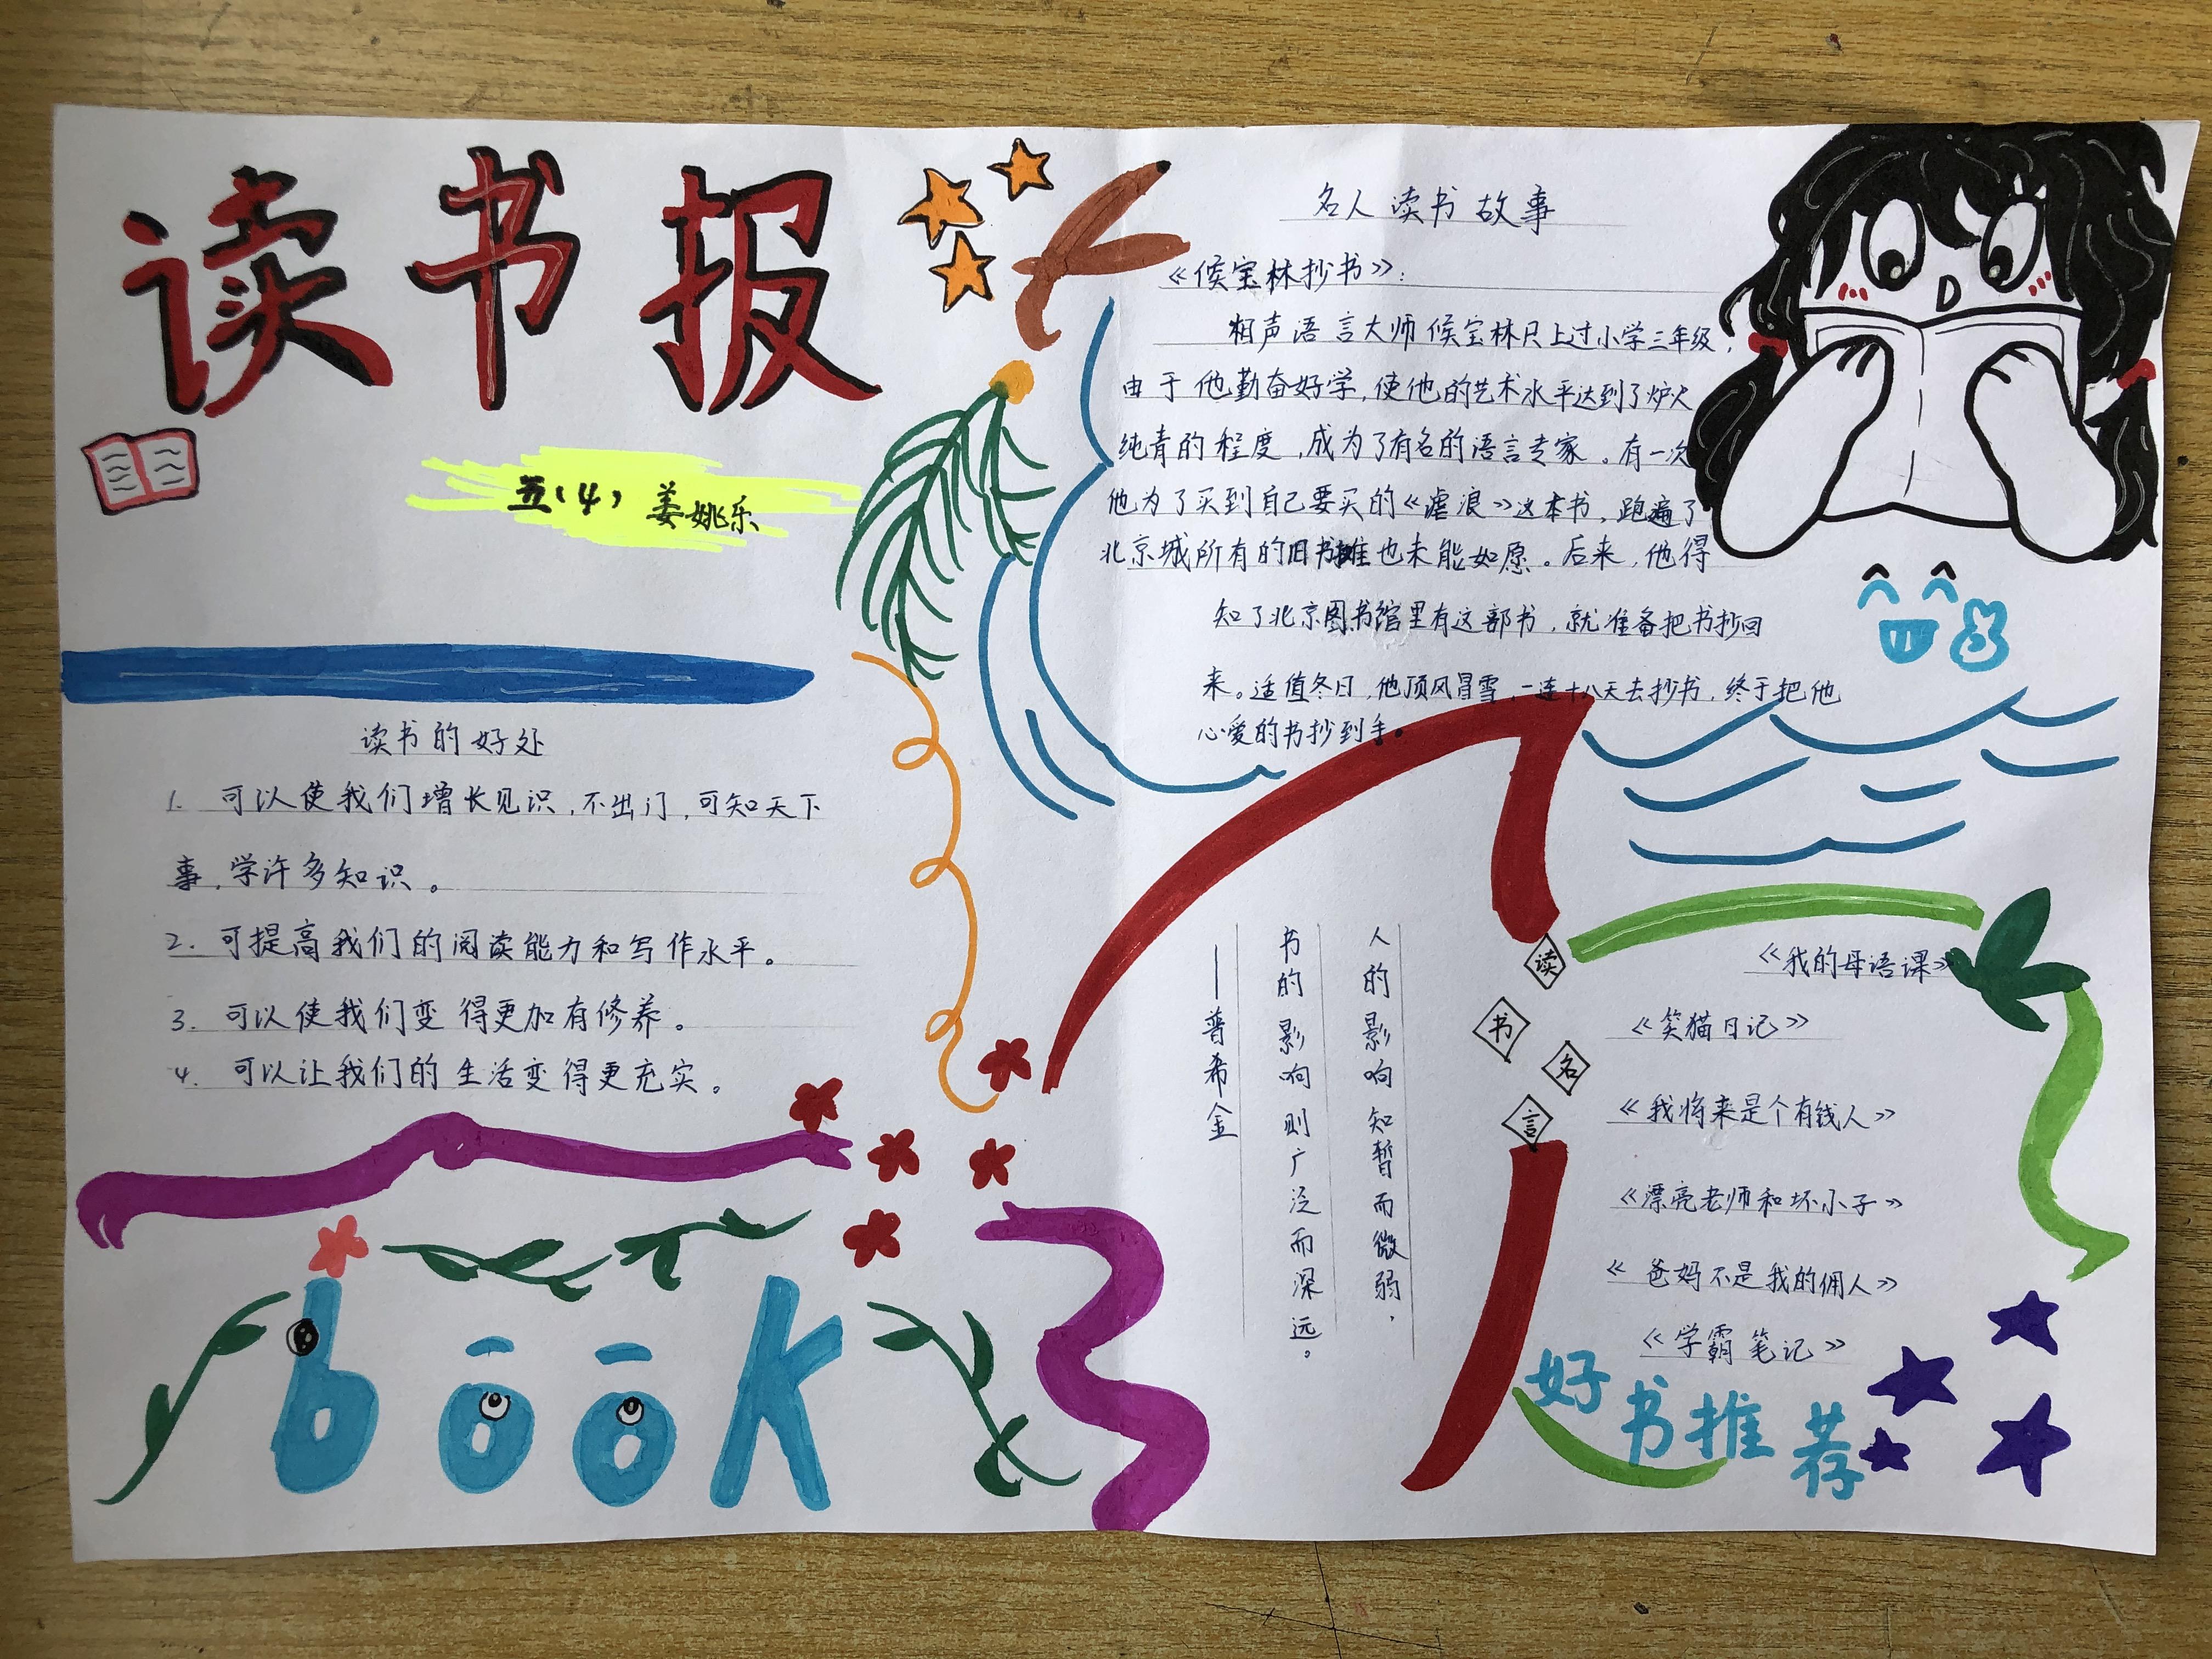 读书报
五(4) 姜姚乐
读书的好处
1. 可以使我们增长见识,不出门,可知天下
事,学许多知识。
2. 可提高我们的阅读能力和写作水平。
3. 可以使我们变得更加有修养。
4. 可以让我们的生活变得更充实。
book
名人读书故事
《侯宝林抄书》:
相声语言大师侯宝林只上过小学三年级,
由于他勤奋好学,使他的艺术水平达到了炉火
纯青的程度,成为了有名的语言专家。有一次
他为了买到自己要买的《谑浪》这本书,跑遍了
北京城所有的旧书摊也未能如愿。后来,他得
知了北京图书馆里有这部书,就准备把书抄回
来。适值冬日,他顶风冒雪,一连十八天去抄书,终于把他
心爱的书抄到手。
读书名言
人的影响知暂而微弱,
书的影响则广泛而深远。
——普希金
《我的母语课》
《笑猫日记》
《我将来是个有钱人》
《漂亮老师和坏小子》
《爸妈不是我的佣人》
《学霸笔记》
好书推荐